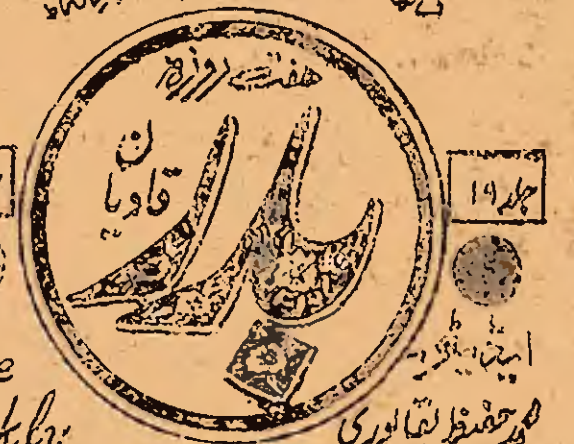 ہفت روزہ
بدر
قادیان
جلد ۱۹
ایڈیٹر
محمد حفیظ بقاپوری